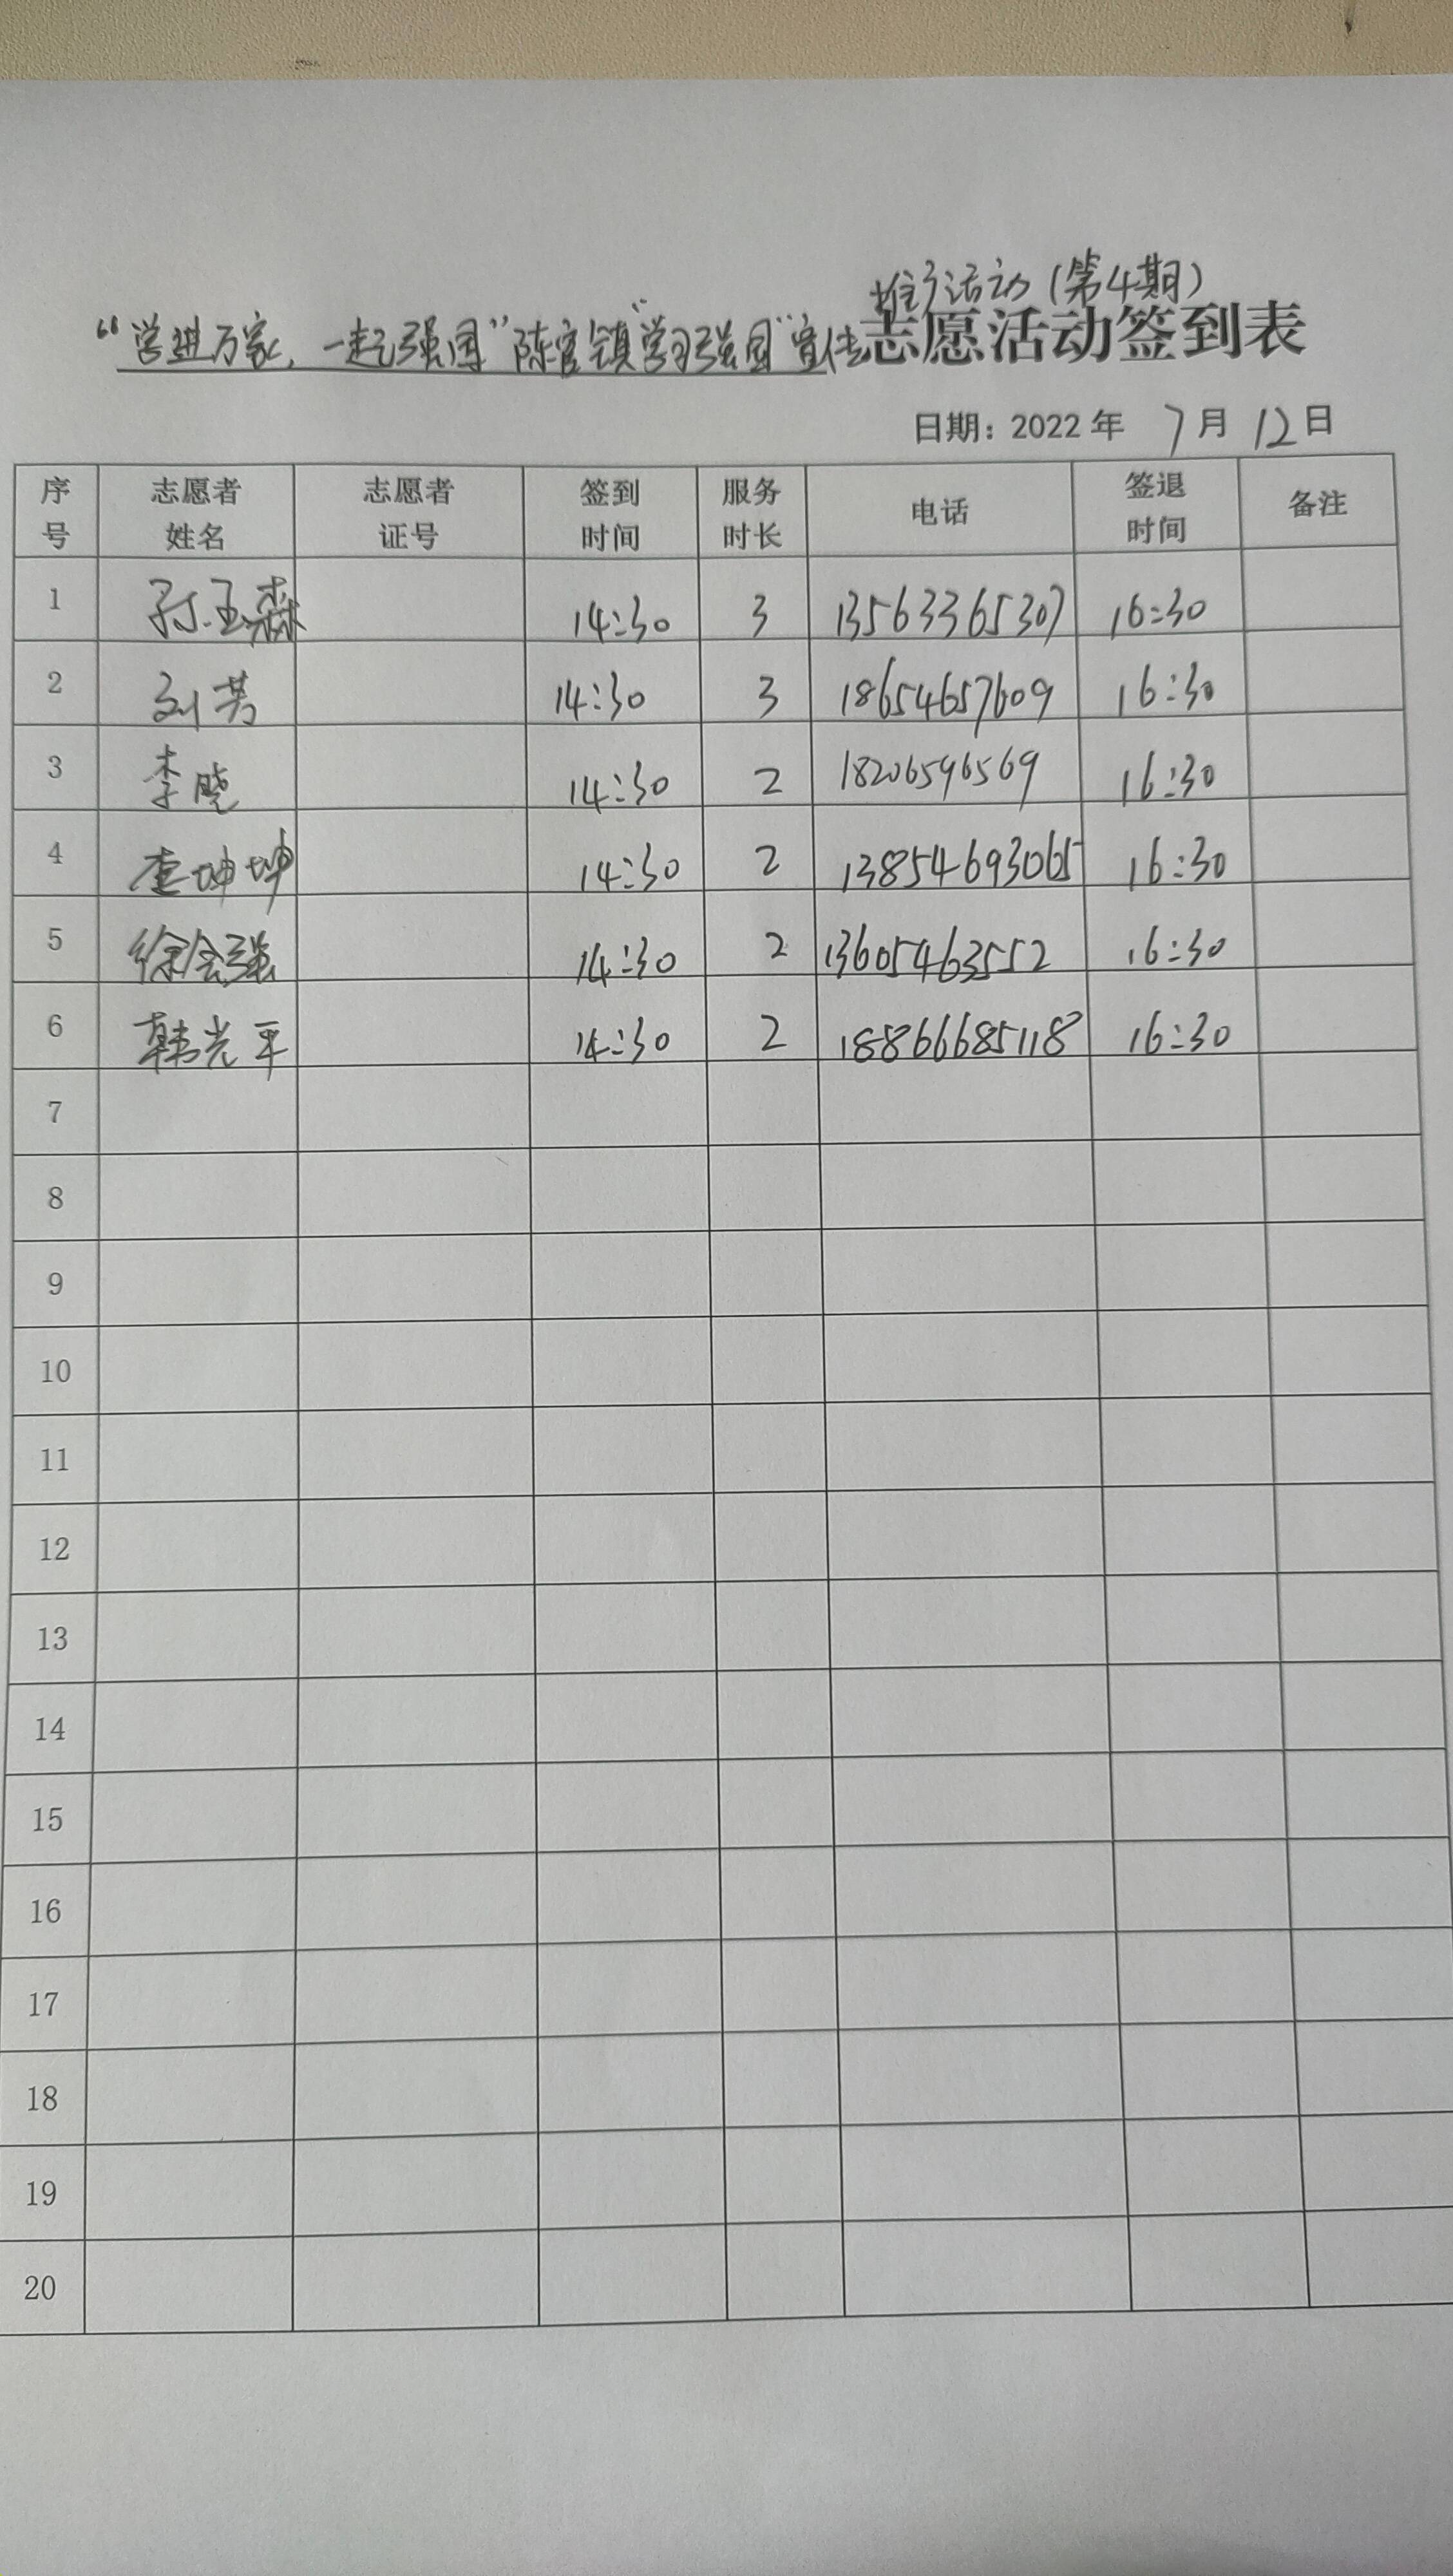 推广活动(第4期)
“学进万家,一起强国”陈官镇“学习强国”宣传志愿活动签到表
日期：2022年 7月 12日
序号 志愿者姓名 志愿者证号 签到时间 服务时长 电话 签退时间 备注
1 孙玉森 14:30 3 13563365307 16:30
2 刘芳 14:30 3 18654657609 16:30
3 李晓 14:30 2 18206596569 16:30
4 坤坤 14:30 2 13854693065 16:30
5 徐会强 14:30 2 13605463552 16:30
6 韩光平 14:30 2 18866685118 16:30
7
8
9
10
11
12
13
14
15
16
17
18
19
20